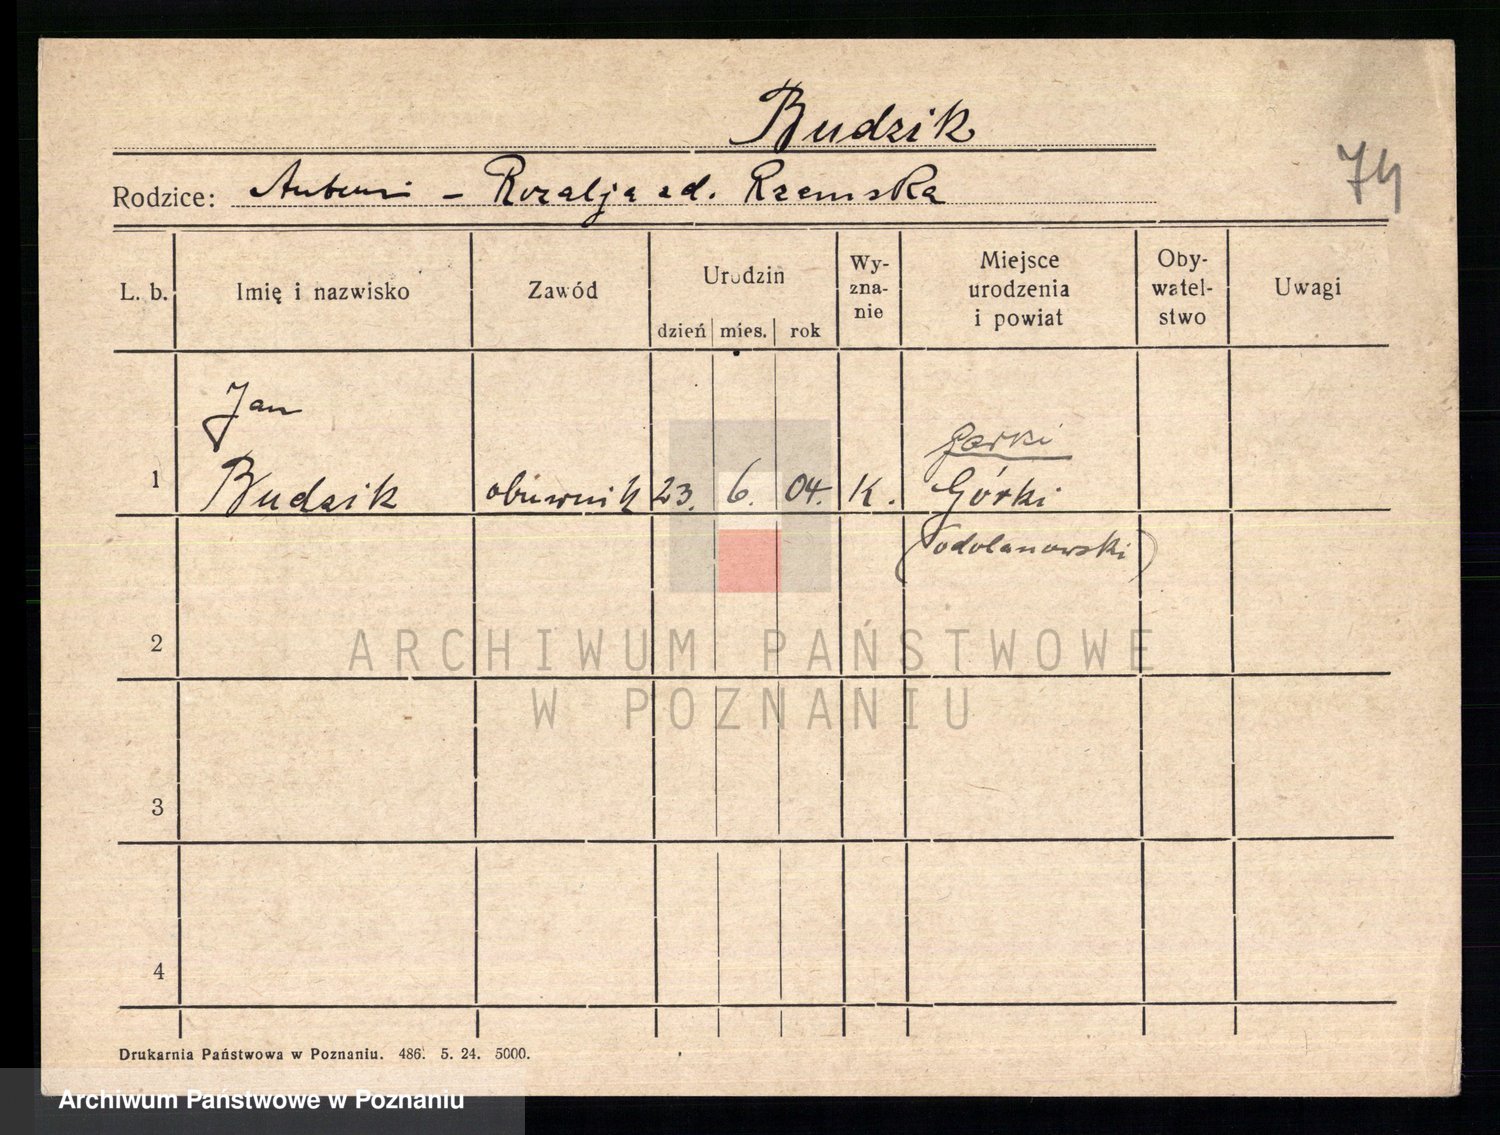 Budzik
74
Rodzice: Antoni - Rozalja zd. Rzemska
L. b. Imię i nazwisko Zawód Urodzin dzień mies. rok Wy-zna-nie Miejsce urodzenia i powiat Oby-watel-stwo Uwagi
Jan
Gorki
1 Budzik obuwnik 23. 6. 04. K. Górki
(odolanowski)
2
3
4
Drukarnia Państwowa w Poznaniu. 486. 5. 24. 5000.
ARCHIWUM PAŃSTWOWE
W POZNANIU
Archiwum Państwowe w Poznaniu